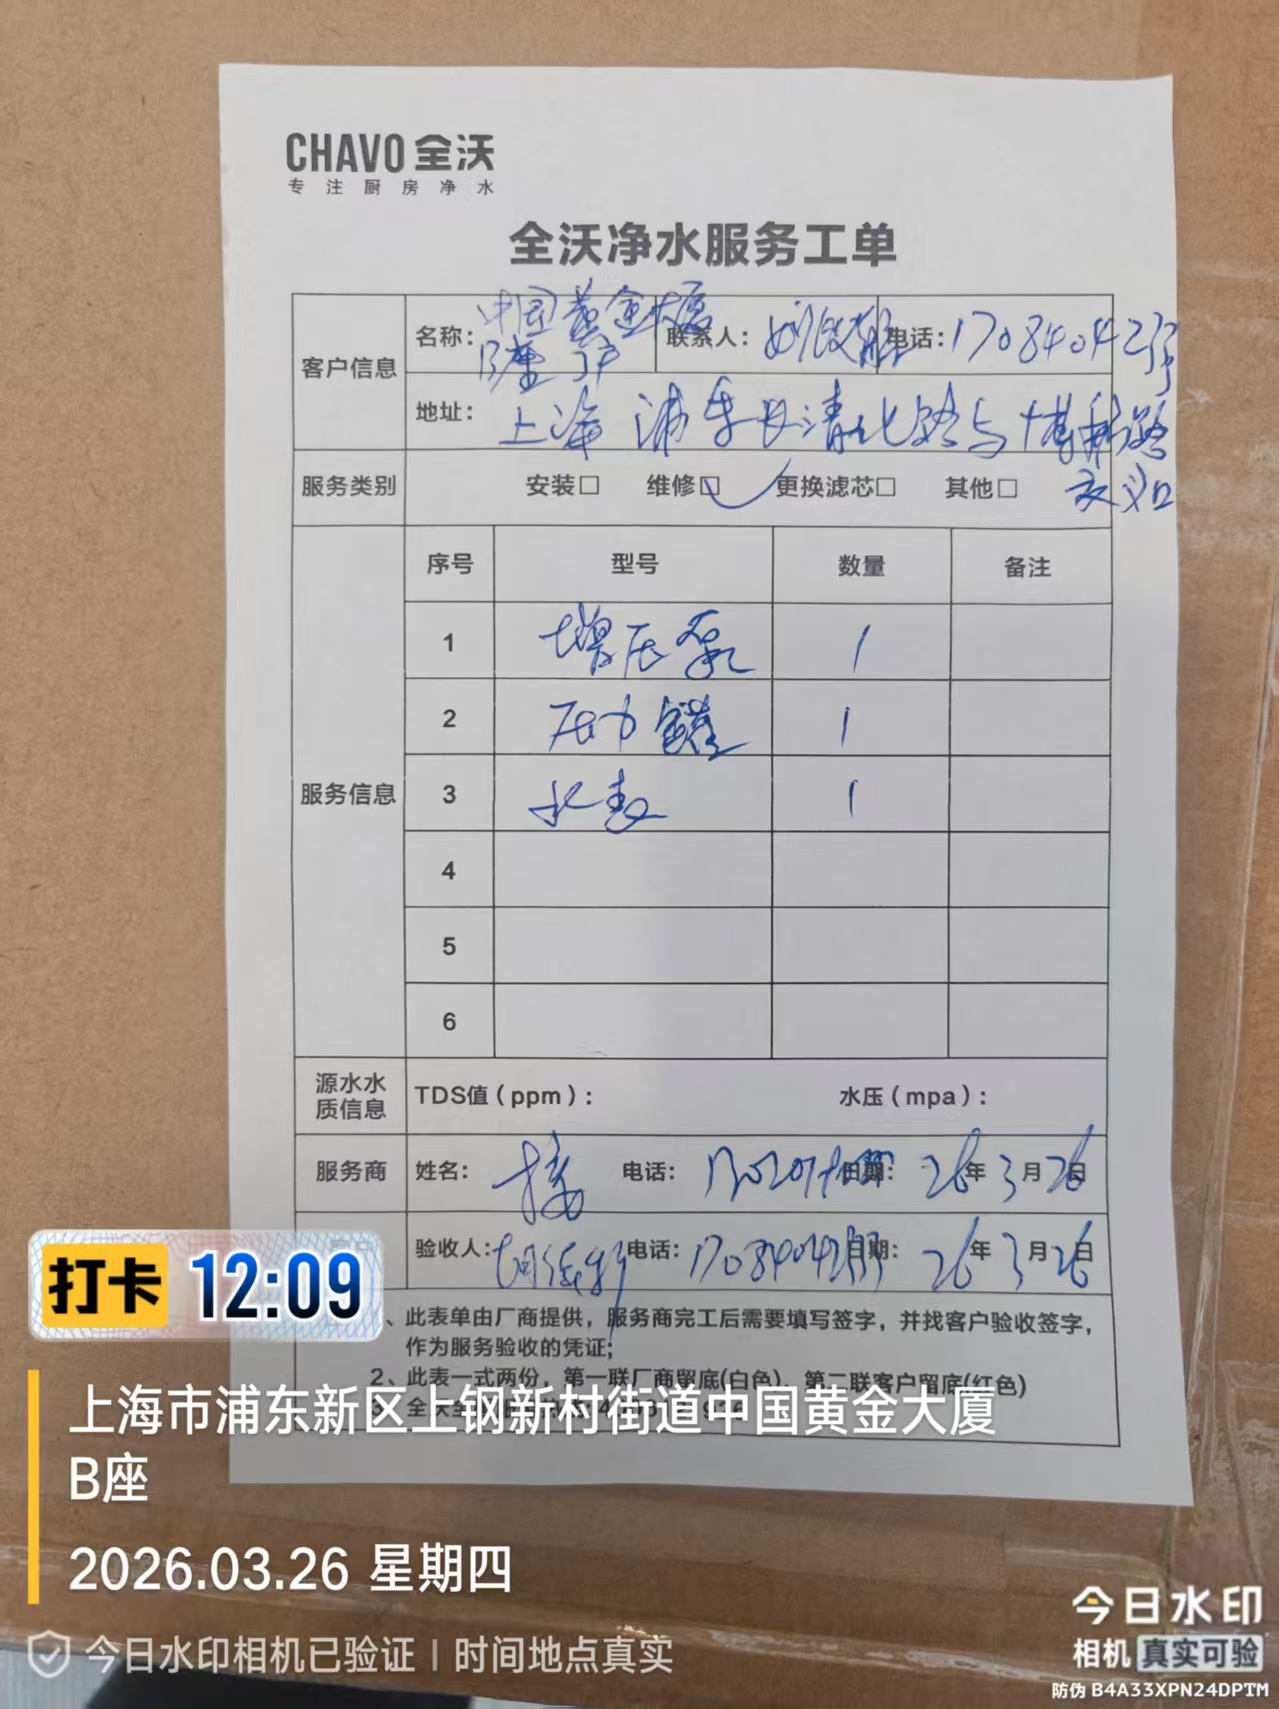 CHAVO 全沃
专注厨房净水
全沃净水服务工单
客户信息
名称: 中国黄金大厦
B座
联系人:
电话: 17084042
地址: 上海 浦东 清化路与博
交叉口
服务类别 安装□ 维修□ 更换滤芯□ 其他□
服务信息
序号 型号 数量 备注
1 增压泵 1
2 压力罐 1
3 水表 1
4
5
6
源水水质信息 TDS值(ppm): 水压(mpa):
服务商 姓名: 电话: 日期: 26年3月26日
验收人: 电话: 日期: 26年3月26日
、此表单由厂商提供，服务商完工后需要填写签字，并找客户验收签字，
作为服务验收的凭证;
2、此表一式两份，第一联厂商留底(白色)、第二联客户留底(红色)
打卡 12:09
上海市浦东新区上钢新村街道中国黄金大厦
B座
2026.03.26 星期四
今日水印相机已验证 | 时间地点真实
今日水印
相机 真实可验
防伪 B4A33XPN24DPTM